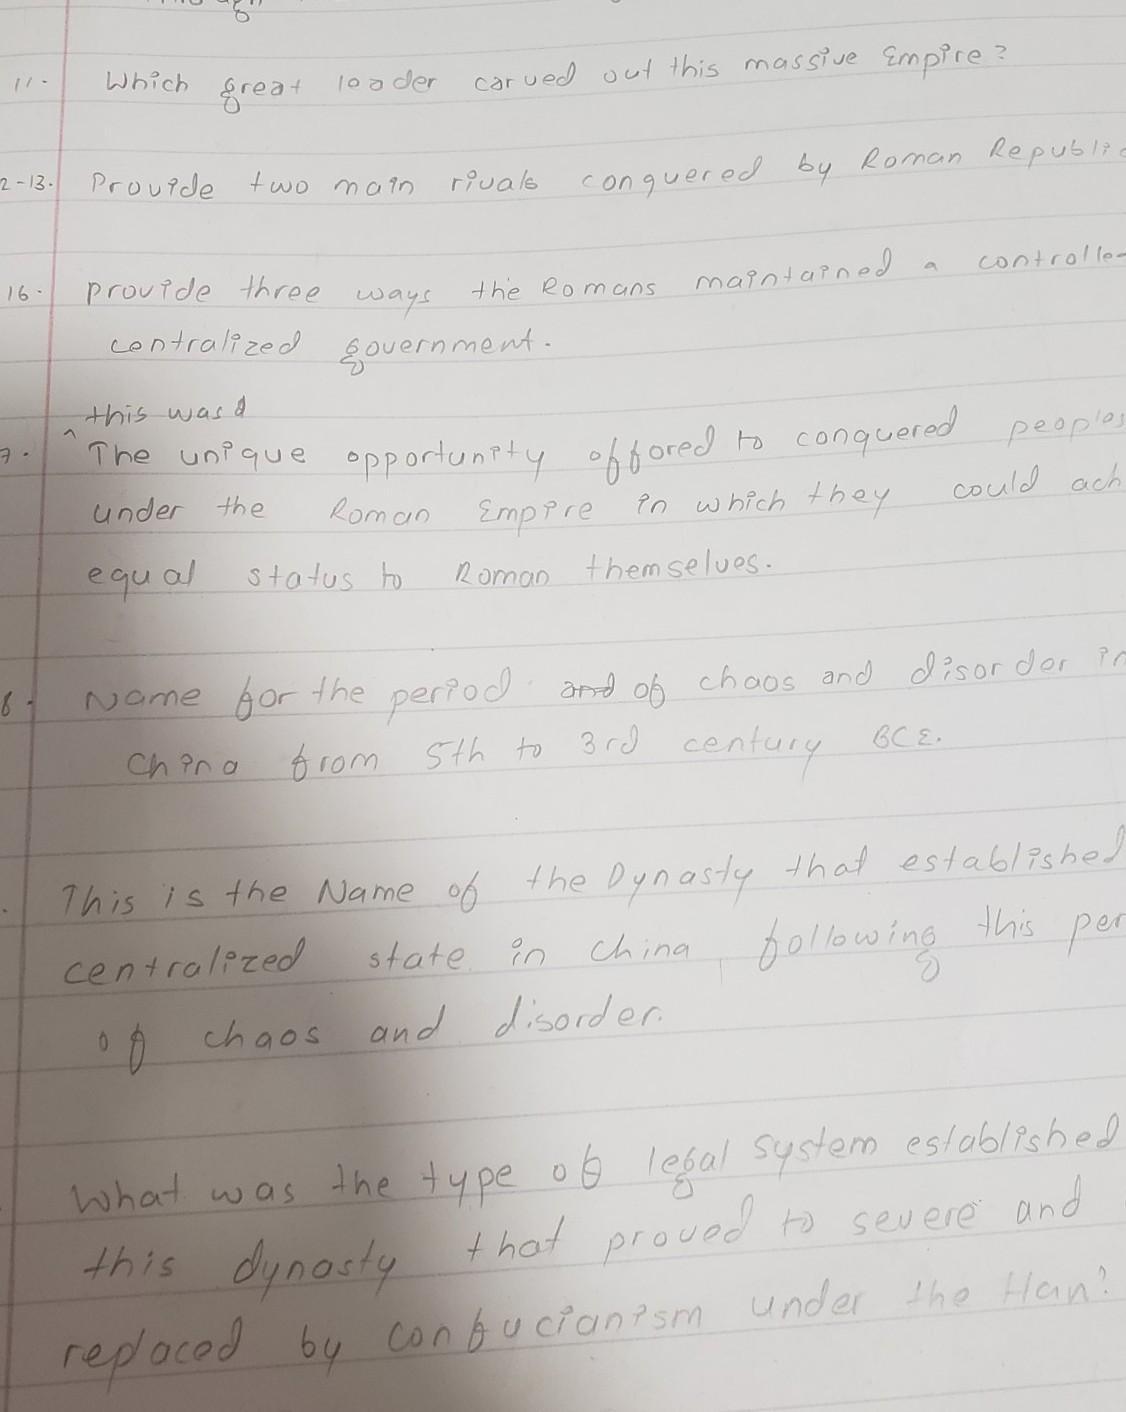 11. Which great leader carved out this massive Empire?
2-13. Provide two main rivals conquered by Roman Republic
16. provide three ways the Romans maintained a controlle
centralized government.
this was a
^
7. The unique opportunity offered to conquered peoples
under the Roman Empire in which they could ach
equal status to Roman themselves.
8. Name for the period and of chaos and disorder in
China from 5th to 3rd century BCE.
. This is the Name of the Dynasty that established
centralized state in China following this per
of chaos and disorder.
What was the type of legal system established
this dynasty that proved to severe and
replaced by confucianism under the Han?